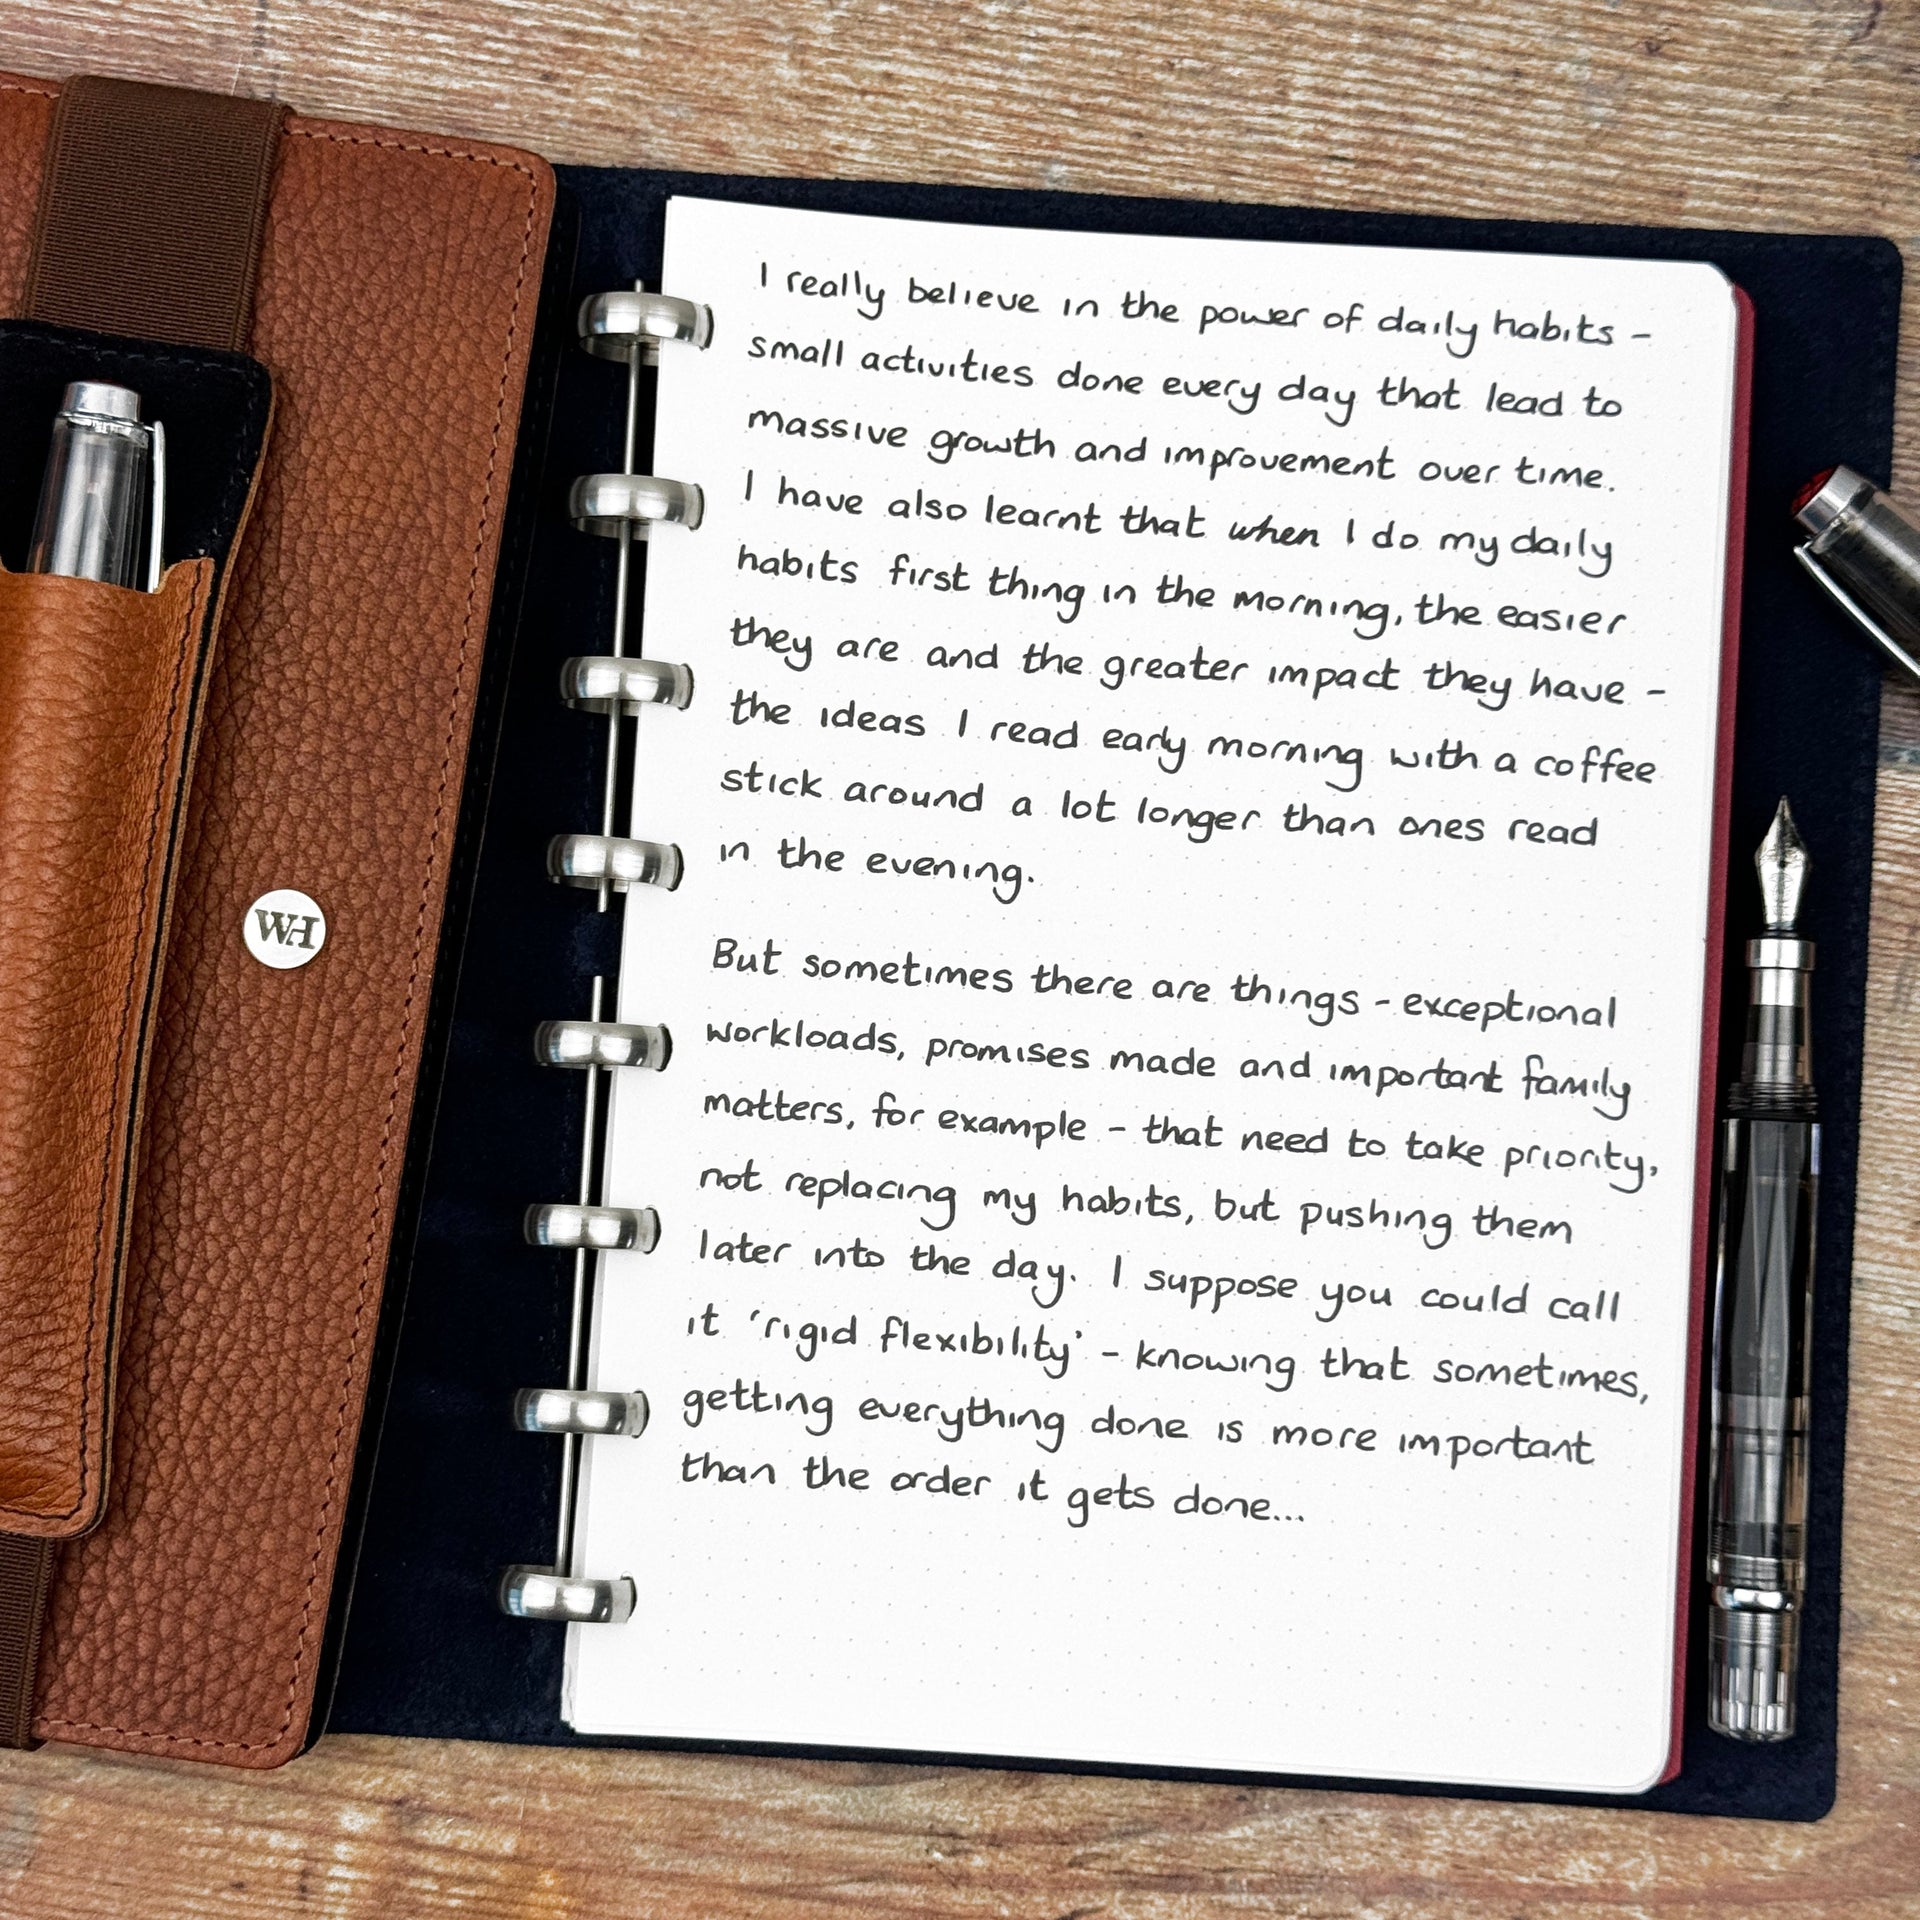 WH
I really believe in the power of daily habits -
small activities done every day that lead to
massive growth and improvement over time.
I have also learnt that when I do my daily
habits first thing in the morning, the easier
they are and the greater impact they have -
the ideas I read early morning with a coffee
stick around a lot longer than ones read
in the evening.
But sometimes there are things - exceptional
workloads, promises made and important family
matters, for example - that need to take priority,
not replacing my habits, but pushing them
later into the day. I suppose you could call
it 'rigid flexibility' - knowing that sometimes,
getting everything done is more important
than the order it gets done...